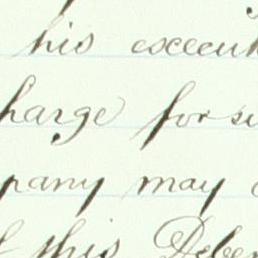 his execut
harge for su
pany may
this Deben